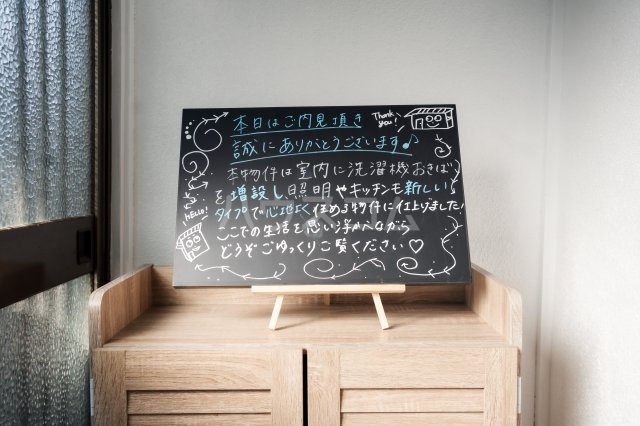 本日はご内見頂き
Thank you!
誠にありがとうございます♪
本物件は室内に洗濯機おきば
を増設し照明やキッチンも新しい
タイプで心地よく住める物件に仕上げました!
HELLO!
ここでの生活を思い浮かべながら
どうぞごゆっくりご覧ください♡